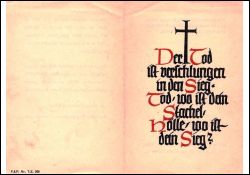 Der Tod
ist verschlungen
in den Sieg·
Tod, wo ist dein
Stachel
Hölle, wo ist
dein Sieg?